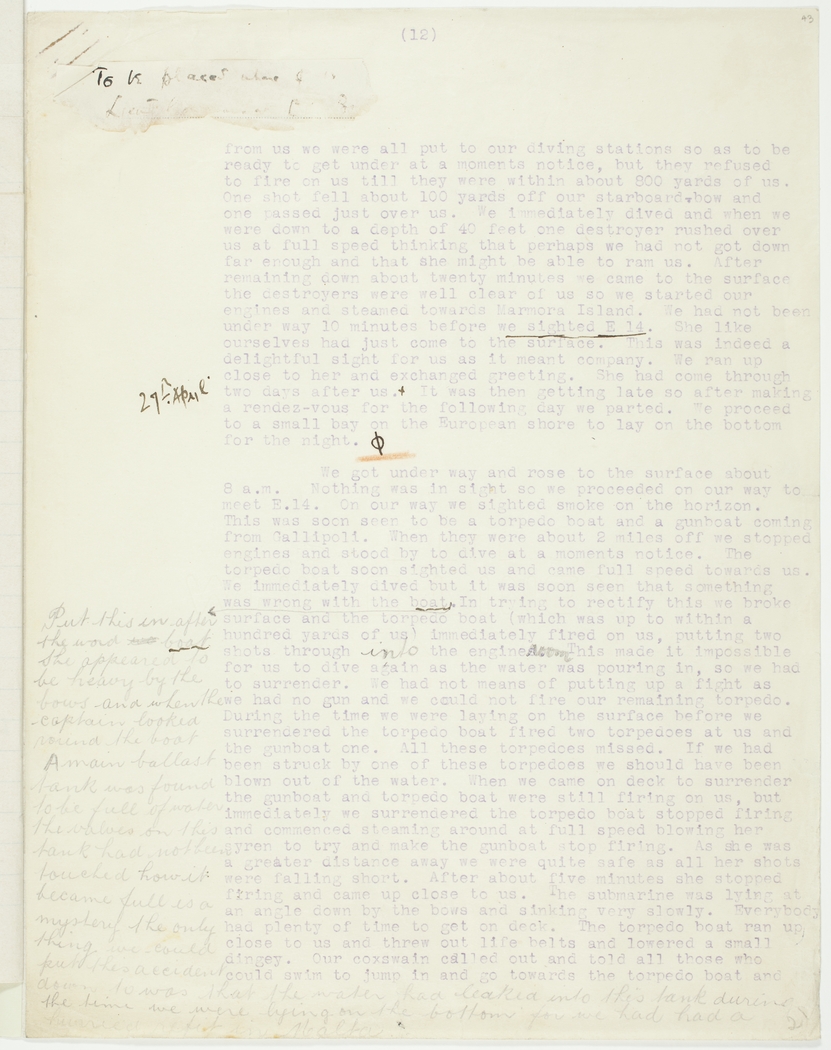 43
(12)
To be placed
from us we were all put to our diving stations so as to be
ready to get under at a moments notice, but they refused
to fire on us till they were within about 800 yards of us.
One shot fell about 100 yards off our starboard bow and
one passed just over us. We immediately dived and when we
were down to a depth of 40 feet one destroyer rushed over
us at full speed thinking that perhaps we had not got down
far enough and that she might be able to ram us. After
remaining down about twenty minutes we came to the surface
the destroyers were well clear of us so we started our
engines and steamed towards Marmora Island. We had not been
under way 10 minutes before we sighted E 14. She like
ourselves had just come to the surface. This was indeed a
delightful sight for us as it meant company. We ran up
close to her and exchanged greeting. She had come through
29th April
two days after us.+ It was then getting late so after making
a rendez-vous for the following day we parted. We proceed
to a small bay on the European shore to lay on the bottom
for the night. ϕ
We got under way and rose to the surface about
8 a.m. Nothing was in sight so we proceeded on our way to
meet E.14. On our way we sighted smoke on the horizon.
This was soon seen to be a torpedo boat and a gunboat coming
from Gallipoli. When they were about 2 miles off we stopped
engines and stood by to dive at a moments notice. The
torpedo boat soon sighted us and came full speed towards us.
We immediately dived but it was soon seen that something
was wrong with the boat. In trying to rectify this we broke
surface and the torpedo boat (which was up to within a
hundred yards of us) immediately fired on us, putting two
shots through into the engine room This made it impossible
for us to dive again as the water was pouring in, so we had
to surrender. We had not means of putting up a fight as
we had no gun and we could not fire our remaining torpedo.
During the time we were laying on the surface before we
surrendered the torpedo boat fired two torpedoes at us and
the gunboat one. All these torpedoes missed. If we had
been struck by one of these torpedoes we should have been
blown out of the water. When we came on deck to surrender
the gunboat and torpedo boat were still firing on us, but
immediately we surrendered the torpedo boat stopped firing
and commenced steaming around at full speed blowing her
syren to try and make the gunboat stop firing. As she was
a greater distance away we were quite safe as all her shots
were falling short. After about five minutes she stopped
firing and came up close to us. The submarine was lying at
an angle down by the bows and sinking very slowly. Everybody
had plenty of time to get on deck. The torpedo boat ran up
close to us and threw out life belts and lowered a small
dingey. Our coxswain called out and told all those who
could swim to jump in and go towards the torpedo boat and
Put this in after
the word boat
She appeared to
be heavy by the
bows and when the
captain looked
round the boat
A main ballast
tank was found
to be full of water
the valves on this
tank had not been
touched how it
became full is a
mystery the only
thing we could
put this accident
down to was that the water had leaked into this tank during
the time we were lying on the bottom for we had had a